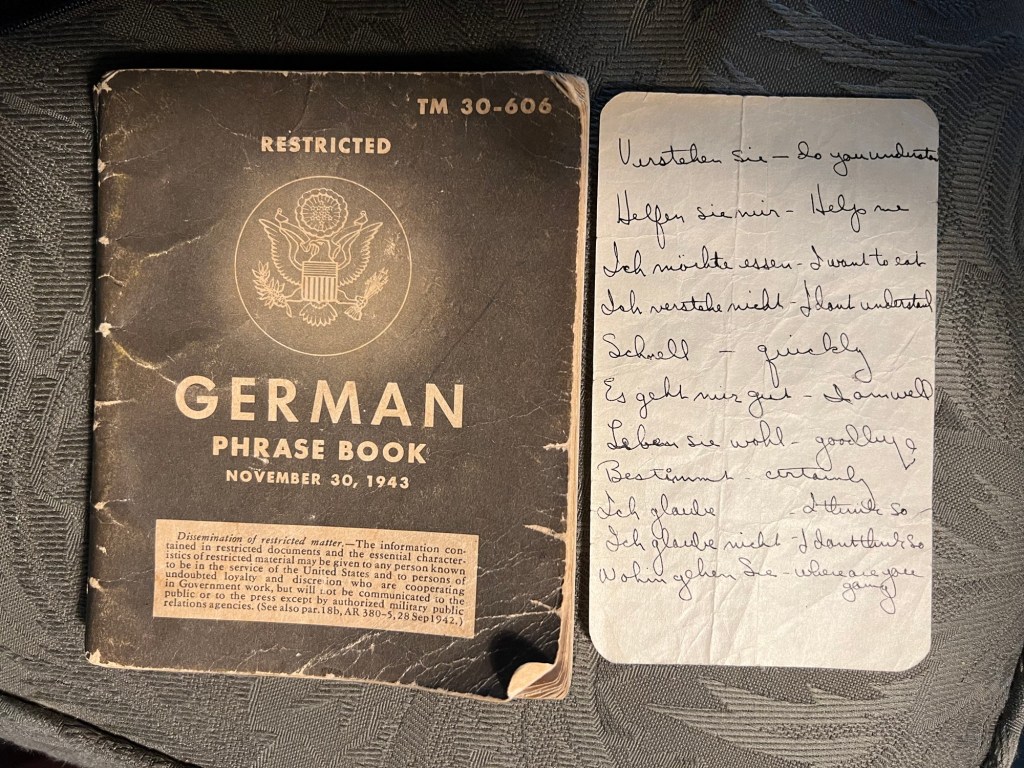 TM 30-606
RESTRICTED
GERMAN
PHRASE BOOK
NOVEMBER 30, 1943
Dissemination of restricted matter.—The information con-
tained in restricted documents and the essential character-
istics of restricted material may be given to any person known
to be in the service of the United States and to persons of
undoubted loyalty and discretion who are cooperating
in Government work, but will not be communicated to the
public or to the press except by authorized military public
relations agencies. (See also par. 18b, AR 380-5, 28 Sep 1942.)
Verstehen sie - do you understan
Helfen sie mir - Help me
Ich möchte essen - I want to eat
Ich verstehe nicht - I dont understand
Schnell - quickly
Es geht mir gut - I am well
Leben sie wohl - goodbye
Bestimmt - certainly
Ich glaube - I think so -
- Ich glaube nicht - I dont think so
Wohin gehen Sie - where are you
going